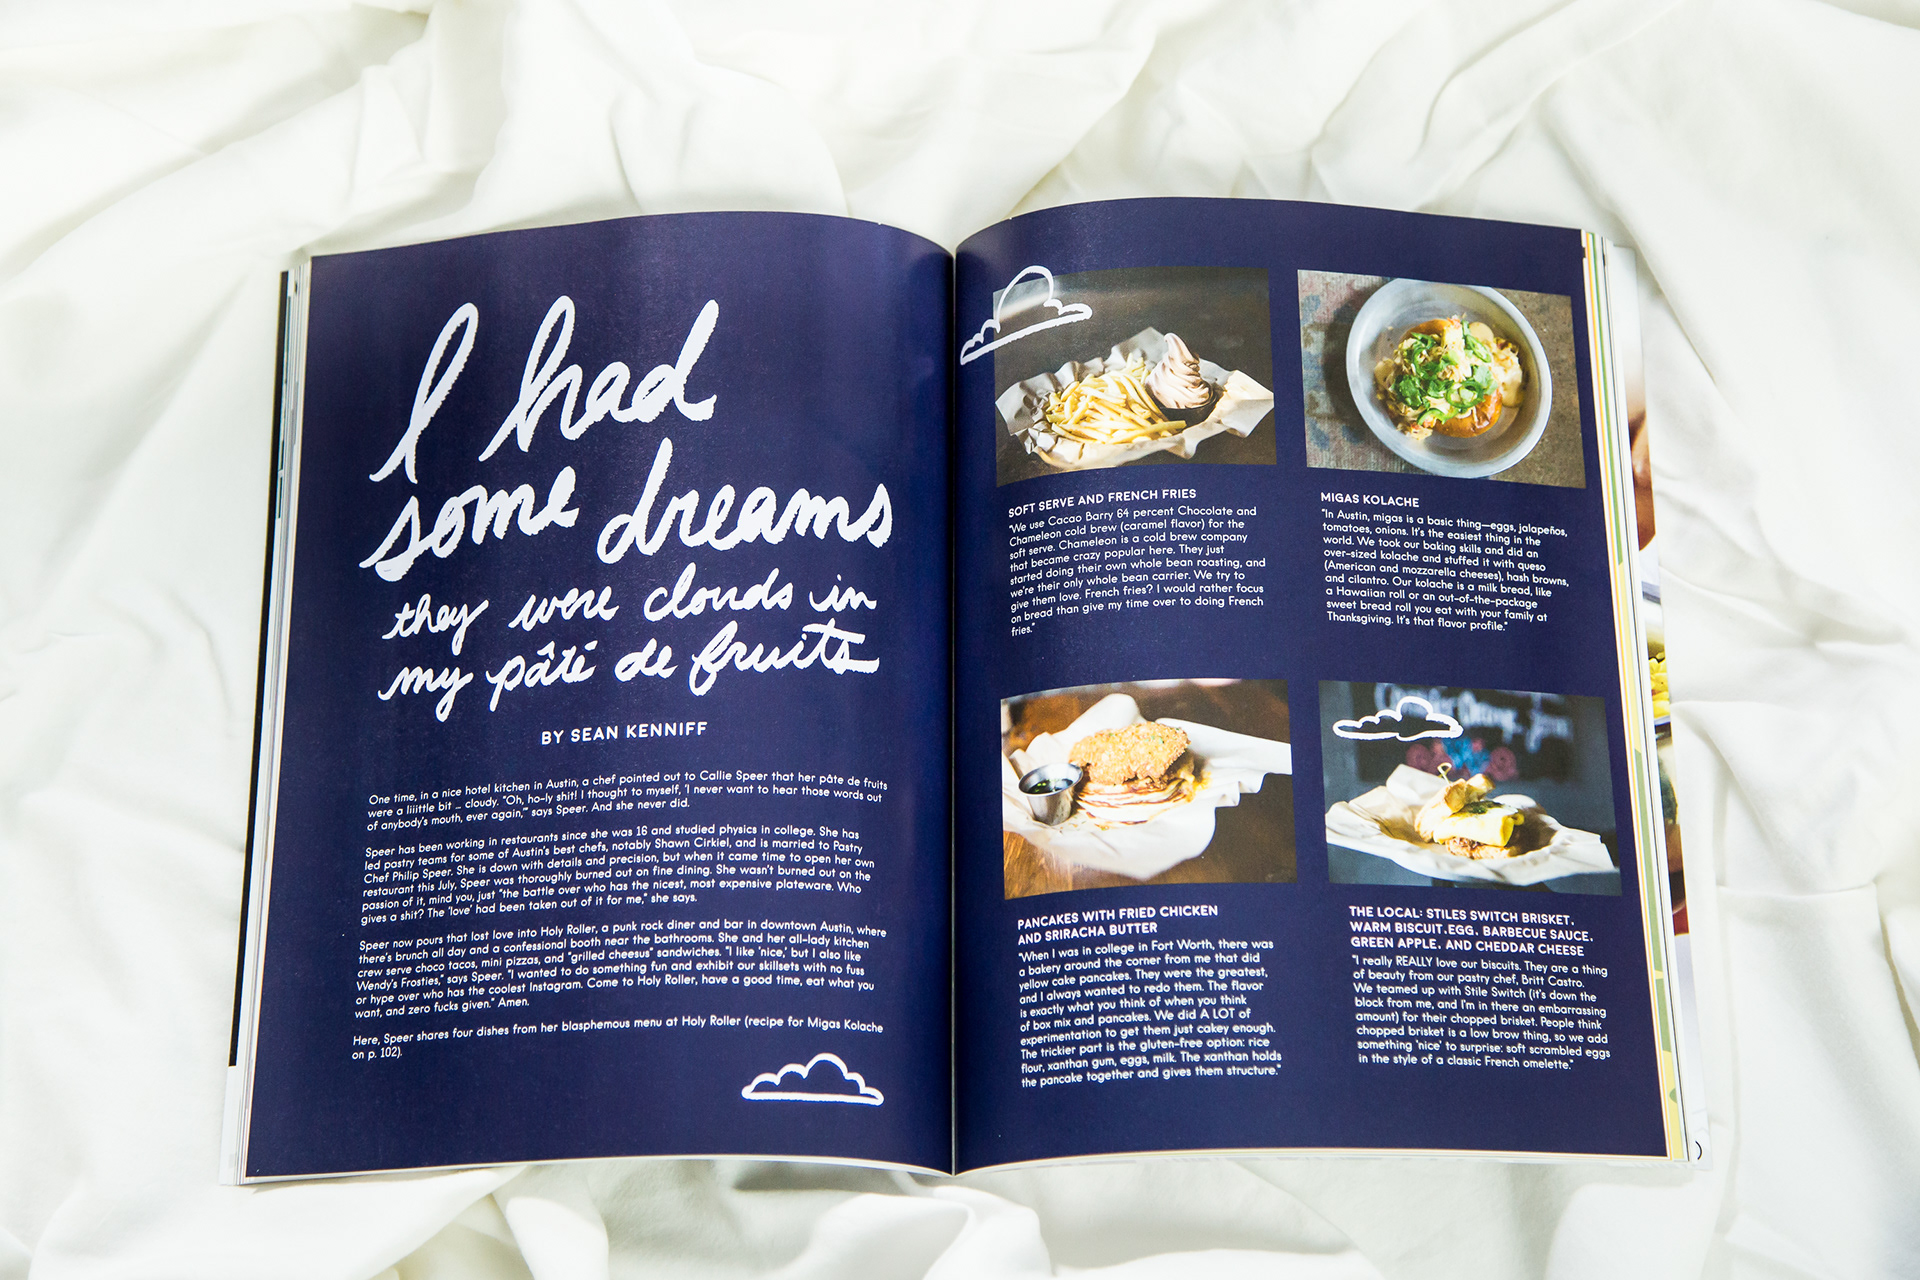 I had
some dreams
they were clouds in
my pâté de fruits
BY SEAN KENNIFF
One time, in a nice hotel kitchen in Austin, a chef pointed out to Callie Speer that her pâte de fruits
were a liiittle bit ... cloudy. "Oh, ho-ly shit! I thought to myself, 'I never want to hear those words out
of anybody's mouth, ever again,'" says Speer. And she never did.
Speer has been working in restaurants since she was 16 and studied physics in college. She has
led pastry teams for some of Austin's best chefs, notably Shawn Cirkiel, and is married to Pastry
Chef Philip Speer. She is down with details and precision, but when it came time to open her own
restaurant this July, Speer was thoroughly burned out on fine dining. She wasn't burned out on the
passion of it, mind you, just "the battle over who has the nicest, most expensive plateware. Who
gives a shit? The 'love' had been taken out of it for me," she says.
Speer now pours that lost love into Holy Roller, a punk rock diner and bar in downtown Austin, where
there's brunch all day and a confessional booth near the bathrooms. She and her all-lady kitchen
crew serve choco tacos, mini pizzas, and "grilled cheesus" sandwiches. "I like 'nice,' but I also like
Wendy's Frosties," says Speer. "I wanted to do something fun and exhibit our skillsets with no fuss
or hype over who has the coolest Instagram. Come to Holy Roller, have a good time, eat what you
want, and zero fucks given." Amen.
Here, Speer shares four dishes from her blasphemous menu at Holy Roller (recipe for Migas Kolache
on p. 102).
SOFT SERVE AND FRENCH FRIES
"We use Cacao Barry 64 percent Chocolate and
Chameleon cold brew (caramel flavor) for the
soft serve. Chameleon is a cold brew company
that became crazy popular here. They just
started doing their own whole bean roasting, and
we're their only whole bean carrier. We try to
give them love. French fries? I would rather focus
on bread than give my time over to doing French
fries."
MIGAS KOLACHE
"In Austin, migas is a basic thing—eggs, jalapeños,
tomatoes, onions. It's the easiest thing in the
world. We took our baking skills and did an
over-sized kolache and stuffed it with queso
(American and mozzarella cheeses), hash browns,
and cilantro. Our kolache is a milk bread, like
a Hawaiian roll or an out-of-the-package
sweet bread roll you eat with your family at
Thanksgiving. It's that flavor profile."
PANCAKES WITH FRIED CHICKEN
AND SRIRACHA BUTTER
"When I was in college in Fort Worth, there was
a bakery around the corner from me that did
yellow cake pancakes. They were the greatest,
and I always wanted to redo them. The flavor
is exactly what you think of when you think
of box mix and pancakes. We did A LOT of
experimentation to get them just cakey enough.
The trickier part is the gluten-free option: rice
flour, xanthan gum, eggs, milk. The xanthan holds
the pancake together and gives them structure."
THE LOCAL: STILES SWITCH BRISKET,
WARM BISCUIT, EGG, BARBECUE SAUCE,
GREEN APPLE, AND CHEDDAR CHEESE
"I really REALLY love our biscuits. They are a thing
of beauty from our pastry chef, Britt Castro.
We teamed up with Stile Switch (it's down the
block from me, and I'm in there an embarrassing
amount) for their chopped brisket. People think
chopped brisket is a low brow thing, so we add
something 'nice' to surprise: soft scrambled eggs
in the style of a classic French omelette."